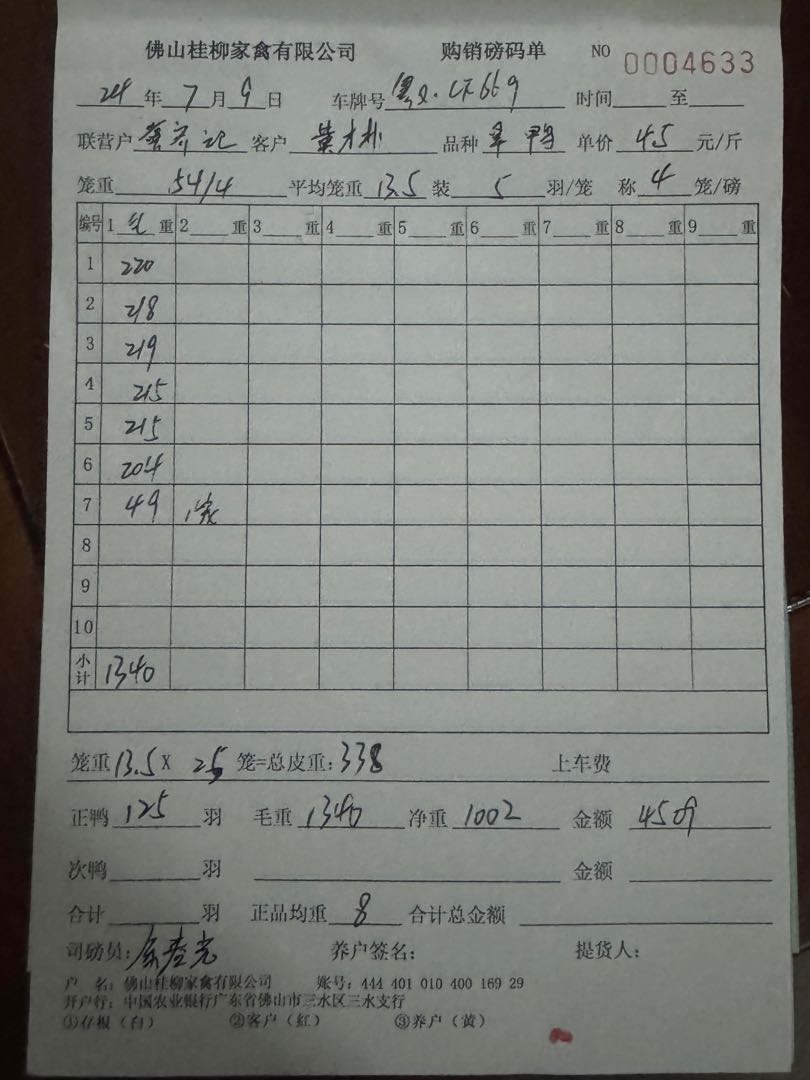 佛山桂柳家禽有限公司 购销磅码单 NO 0004633
24 年 7 月 9 日 车牌号 669 时间 至
联营户 客户 黄 品种 鸭 单价 4.5 元/斤
笼重 54/4 平均笼重 13.5 装 5 羽/笼 称 4 笼/磅
编号 1 毛 重 2 重 3 重 4 重 5 重 6 重 7 重 8 重 9 重
1 220
2 218
3 219
4 215
5 215
6 204
7 49 1
8
9
10
小计 1340
笼重 13.5 X 25 笼=总皮重: 338 上车费
正鸭 125 羽 毛重 1340 净重 1002 金额 4509
次鸭 羽 金额
合计 羽 正品均重 8 合计总金额
司磅员: 养户签名: 提货人:
户 名: 佛山桂柳家禽有限公司 账号: 444 401 010 400 169 29
开户行: 中国农业银行广东省佛山市三水区三水支行
①存根（白） ②客户（红） ③养户（黄）